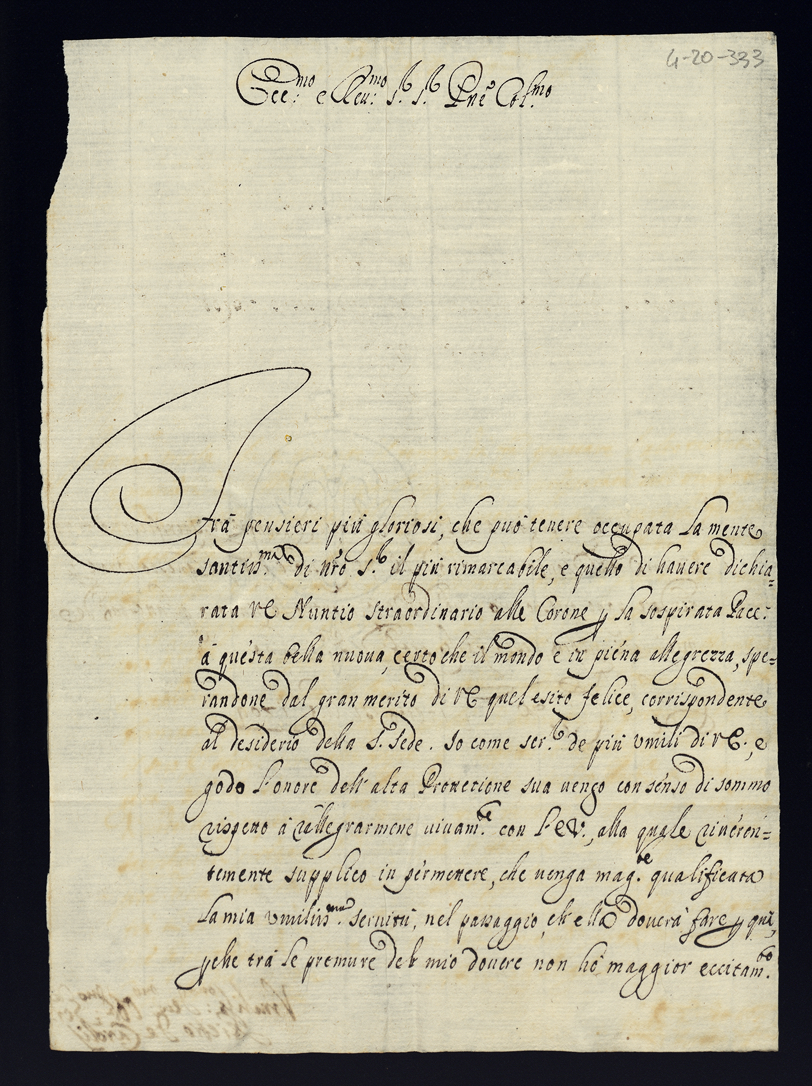 4-20-333
Ecc:mo e Reu:mo S.r S.r Pne Col:mo
Frà pensieri più gloriosi, che può tenere occupata la mente
santiss:ma di nro S.r il più rimarcabile, è quello di hauere dichia=
rata VE Nuntio straordinario alle Corone p la sospirata Pace:
à questa bella nuoua, certo che il mondo è in piena allegrezza, spe=
randone dal gran merito di VE quel esito felice, corrispondente
al desiderio della S. Sede. Io come ser.e de più umili di VE., e
godo l'onore dell'alta Protettione sua uengo con senso di sommo
rispetto à rallegrarmene uiuam.te con l'EV., alla quale riueren=
temente supplico in permettere, che uenga mag.te qualificata
la mia umiliss:ma seruitù, nel passaggio, ch'ella douerà fare p quà,
p che trà le premure del mio douere non hò maggior eccitam.to